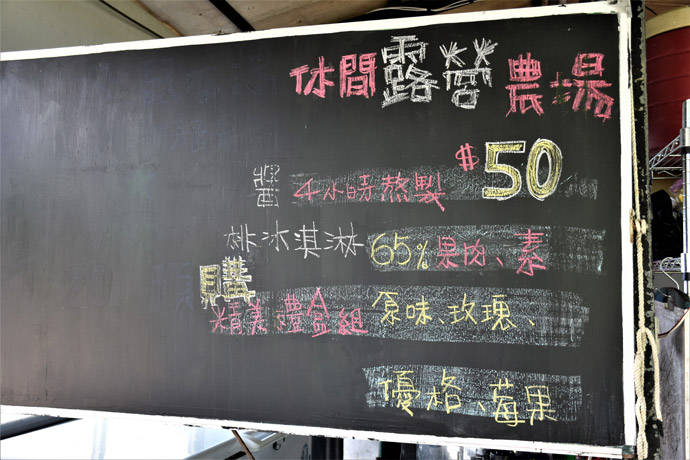 休閒露營農場
$50
醬 4小時熬製
桃冰淇淋 65%果肉、素
購
精美禮盒組 原味、玫瑰、
優格、莓果